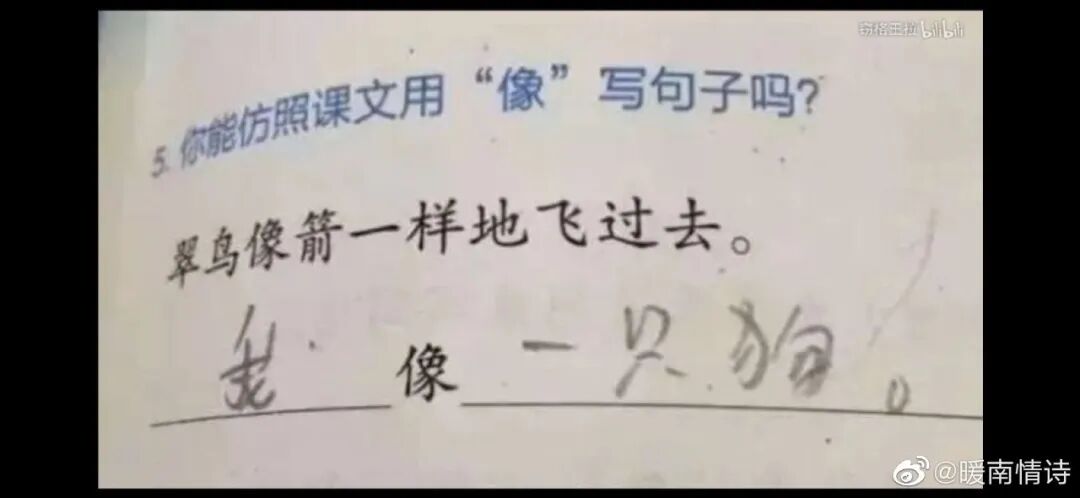 窃格瓦拉 bilibili
5. 你能仿照课文用“像”写句子吗?
翠鸟像箭一样地飞过去。
像一只狗。
@暖南情诗